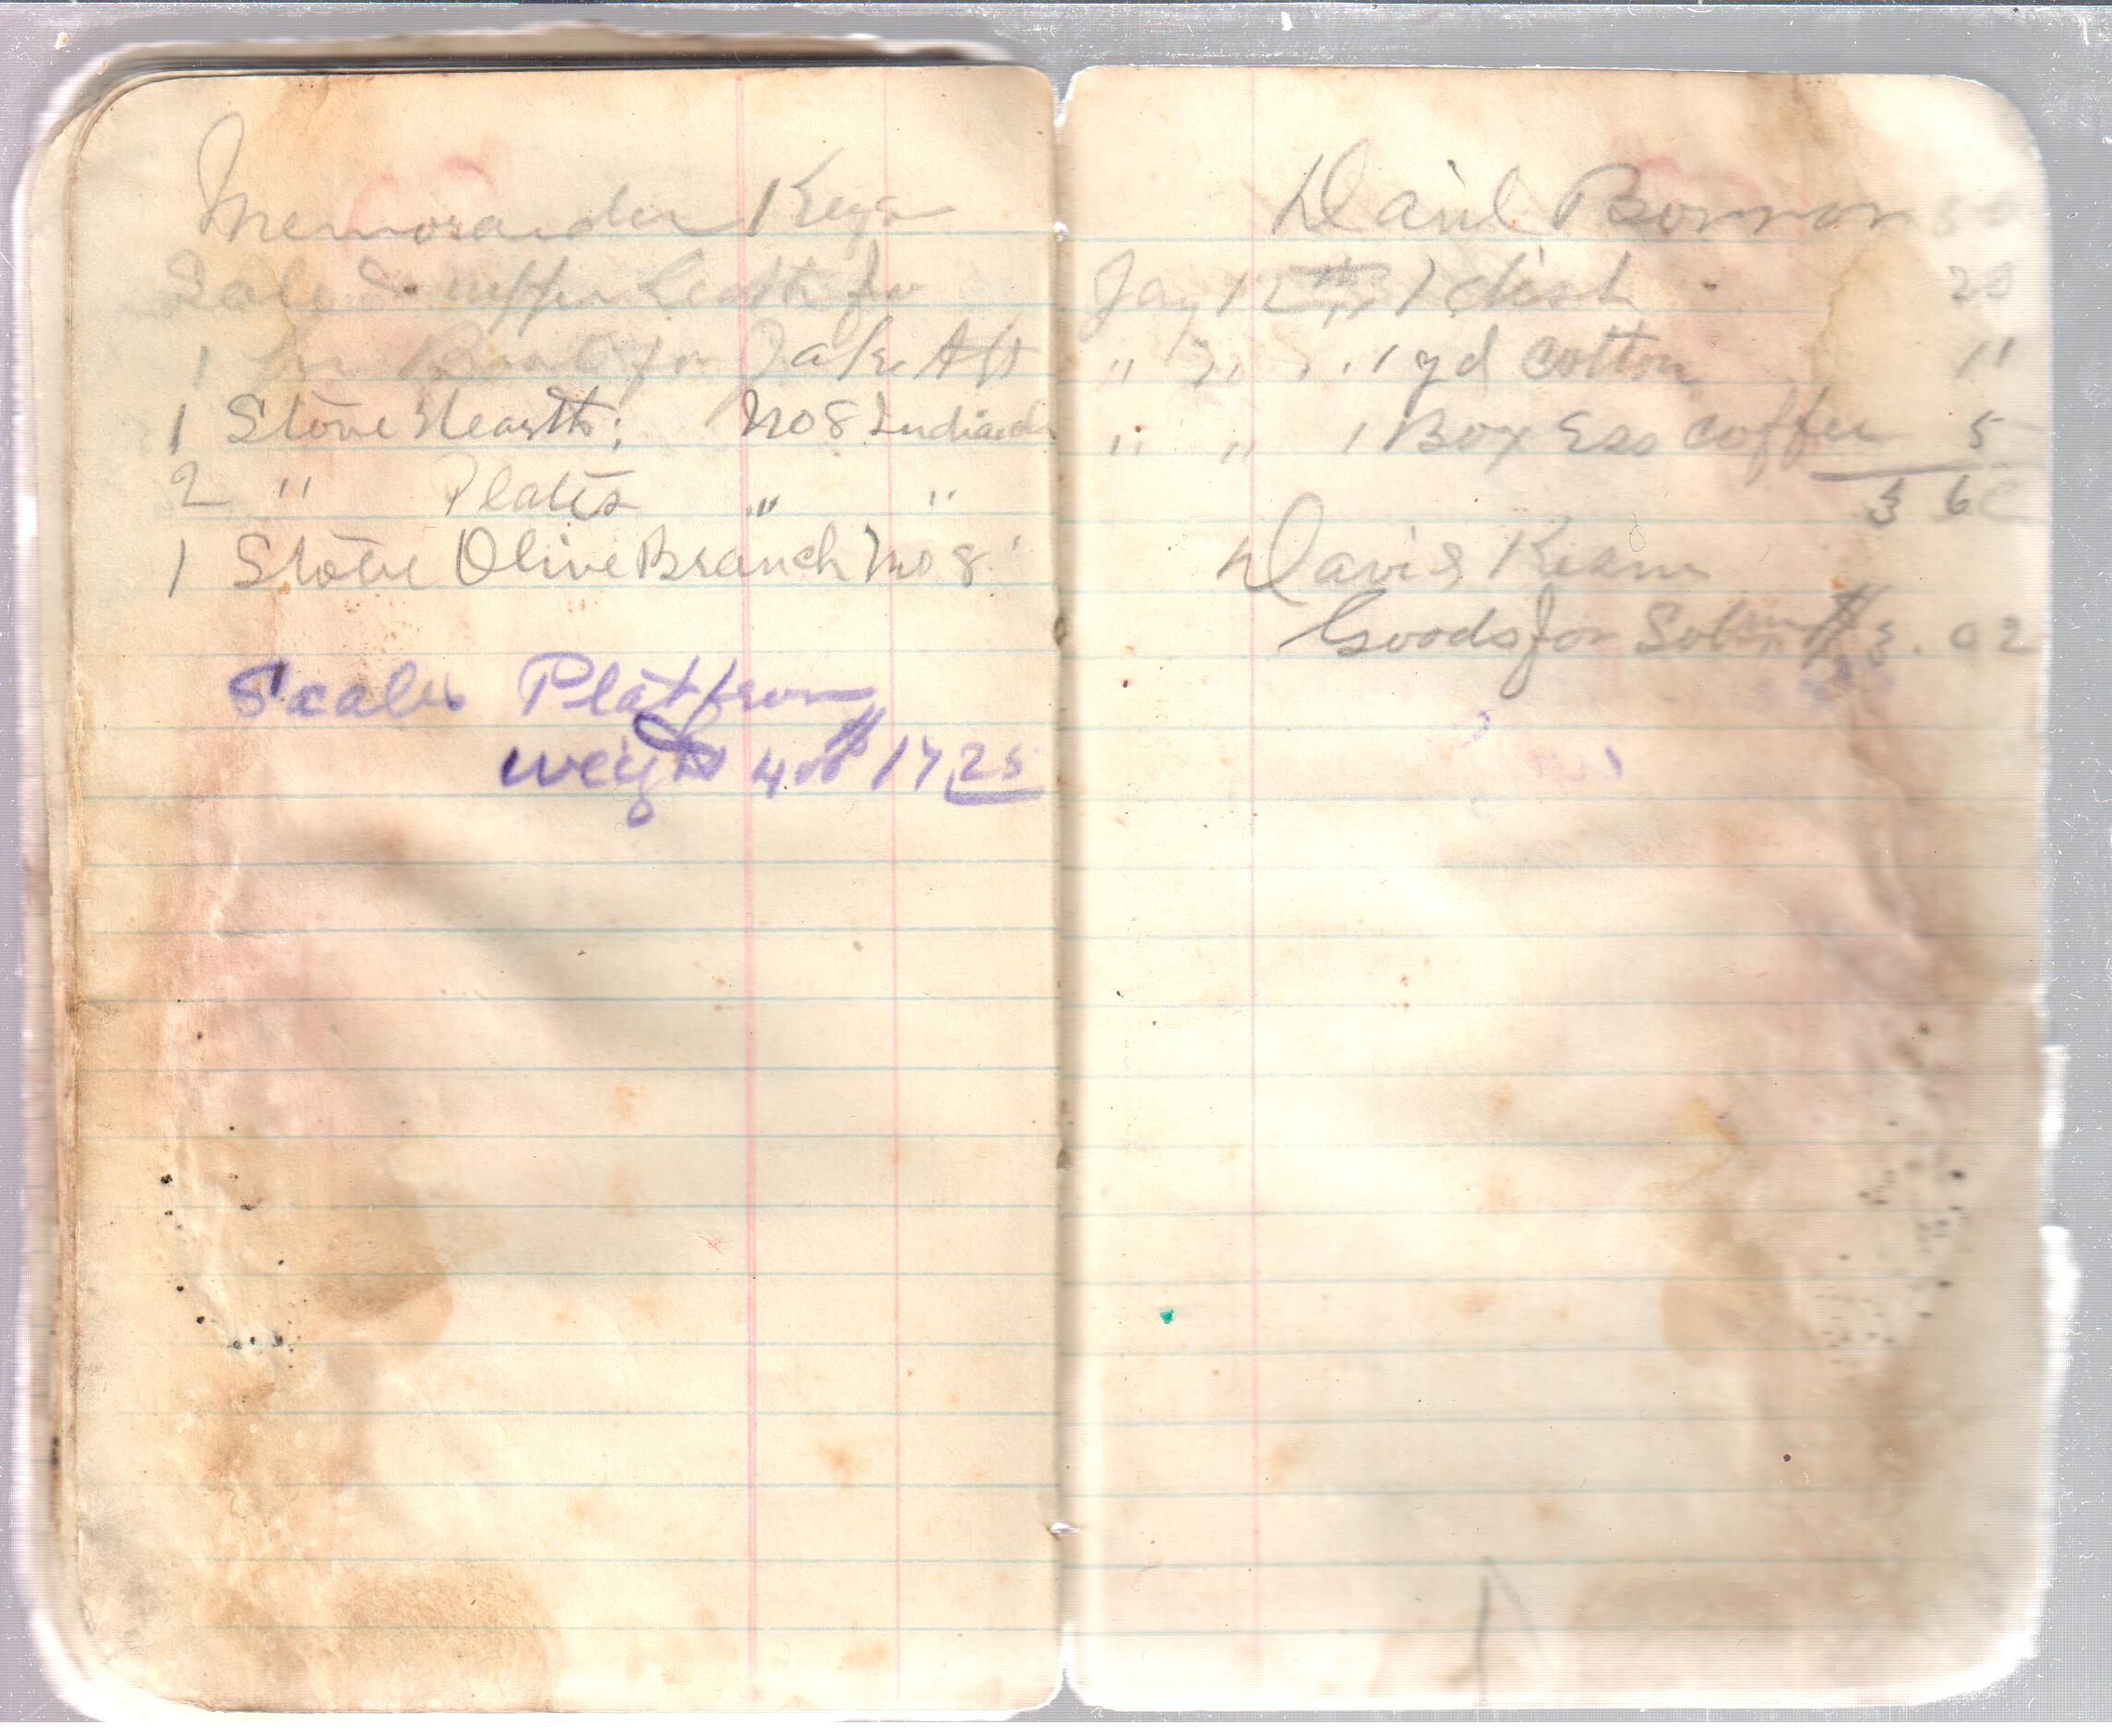 Memorander Keys
Sole & upper Leath for
1
1 Stove Hearth; No 8 Indianola
2 " Plates " "
1 Stove Olive Branch No 8
Scales Platfrom
weight 400# 17 25
Danl Bonnor
Jay 12th " 1 dish 20
" " " 1 yd cotton 11
" " 1 Box Ess coffee 5
3 6
Davis Keans
Goods for $3.02